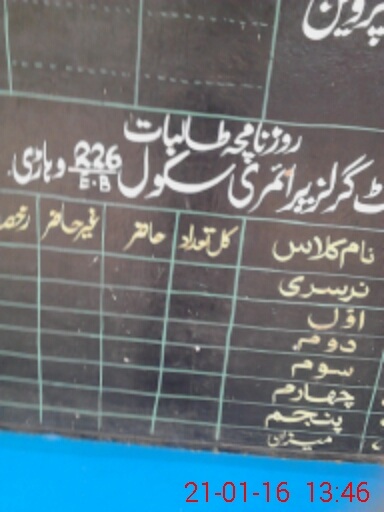 پروین
روزنامچہ طالبات
گرلز پرائمری سکول 226 وہاڑی
E.B
نام کلاس کل تعداد حاضر غیر حاضر
نرسری
اوّل
دوم
سوم
چہارم
پنجم
میزان
21-01-16 13:46